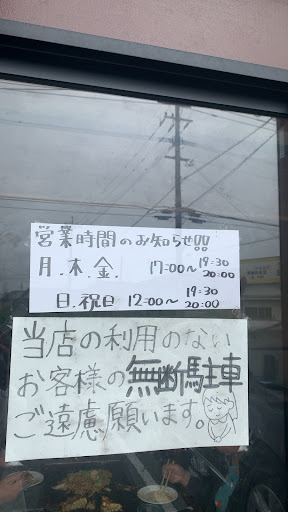 営業時間のお知らせ!!
月.木.金. 17:00〜19:30
20:00
日.祝日 12:00〜19:30
20:00
当店の利用のない
お客様の無断駐車
ご遠慮願います。